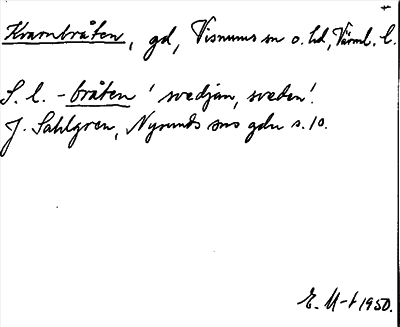 Krambråten, gd, Visnums sn o. hd, Värml. l.
S. l. -bråten 'svedjan, sveden'.
J. Sahlgren, Nysunds sns gdn s. 10.
E. M-t 1950.